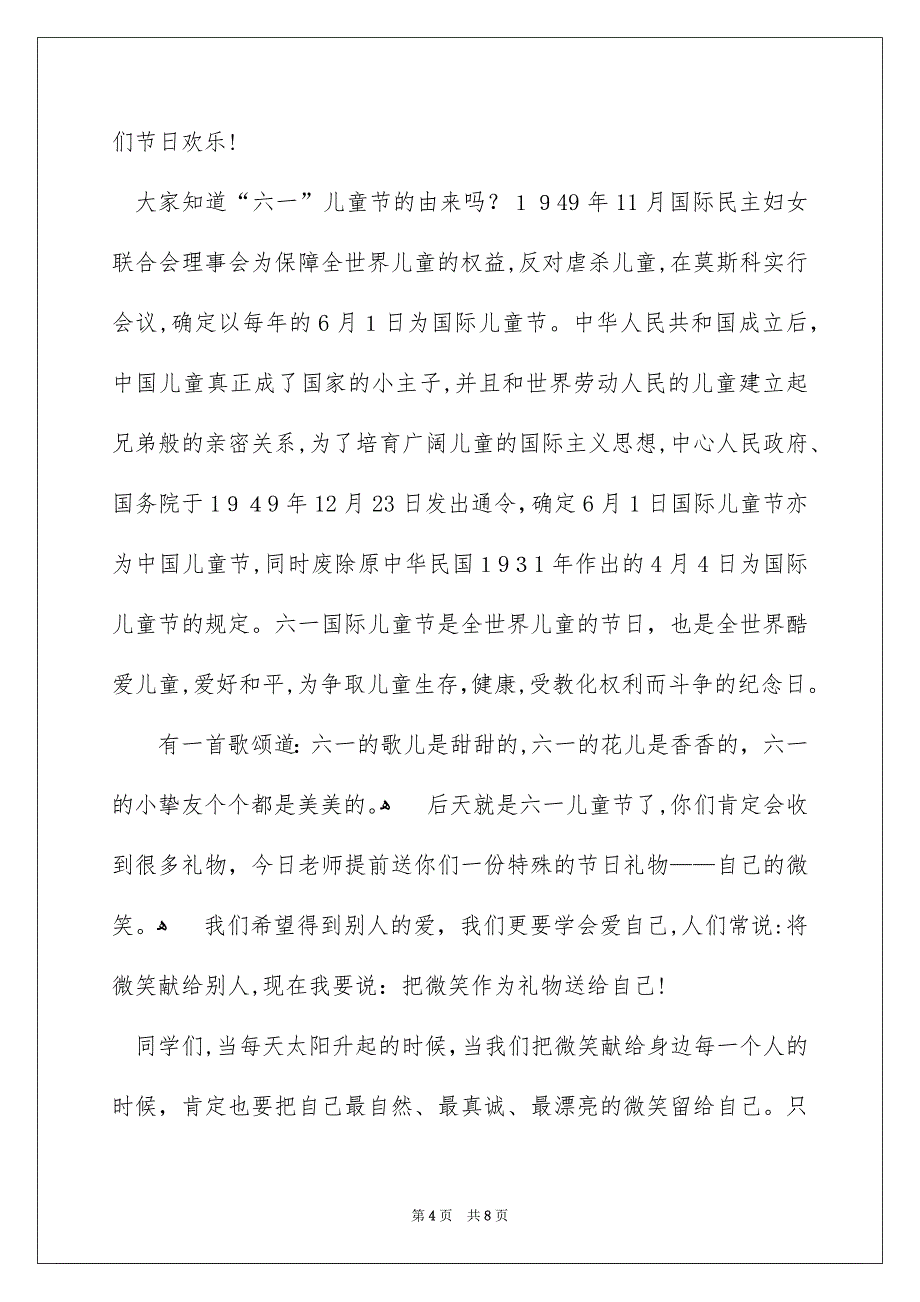 们节日欢乐!
大家知道“六一”儿童节的由来吗？1 949年11月国际民主妇女
联合会理事会为保障全世界儿童的权益,反对虐杀儿童,在莫斯科实行
会议,确定以每年的6月1日为国际儿童节。中华人民共和国成立后,
中国儿童真正成了国家的小主子,并且和世界劳动人民的儿童建立起
兄弟般的亲密关系,为了培育广阔儿童的国际主义思想,中心人民政府、
国务院于1949年12月23日发出通令,确定6月1日国际儿童节亦
为中国儿童节,同时废除原中华民国1931年作出的4月4日为国际
儿童节的规定。六一国际儿童节是全世界儿童的节日，也是全世界酷
爱儿童,爱好和平,为争取儿童生存,健康,受教化权利而斗争的纪念日。
有一首歌颂道：六一的歌儿是甜甜的,六一的花儿是香香的，六一
的小挚友个个都是美美的。ﻫ 后天就是六一儿童节了,你们肯定会收
到很多礼物，今日老师提前送你们一份特殊的节日礼物——自己的微
笑。ﻫ 我们希望得到别人的爱，我们更要学会爱自己,人们常说:将
微笑献给别人,现在我要说：把微笑作为礼物送给自己!
同学们,当每天太阳升起的时候，当我们把微笑献给身边每一个人的
时候，肯定也要把自己最自然、最真诚、最漂亮的微笑留给自己。只
第4页 共8页